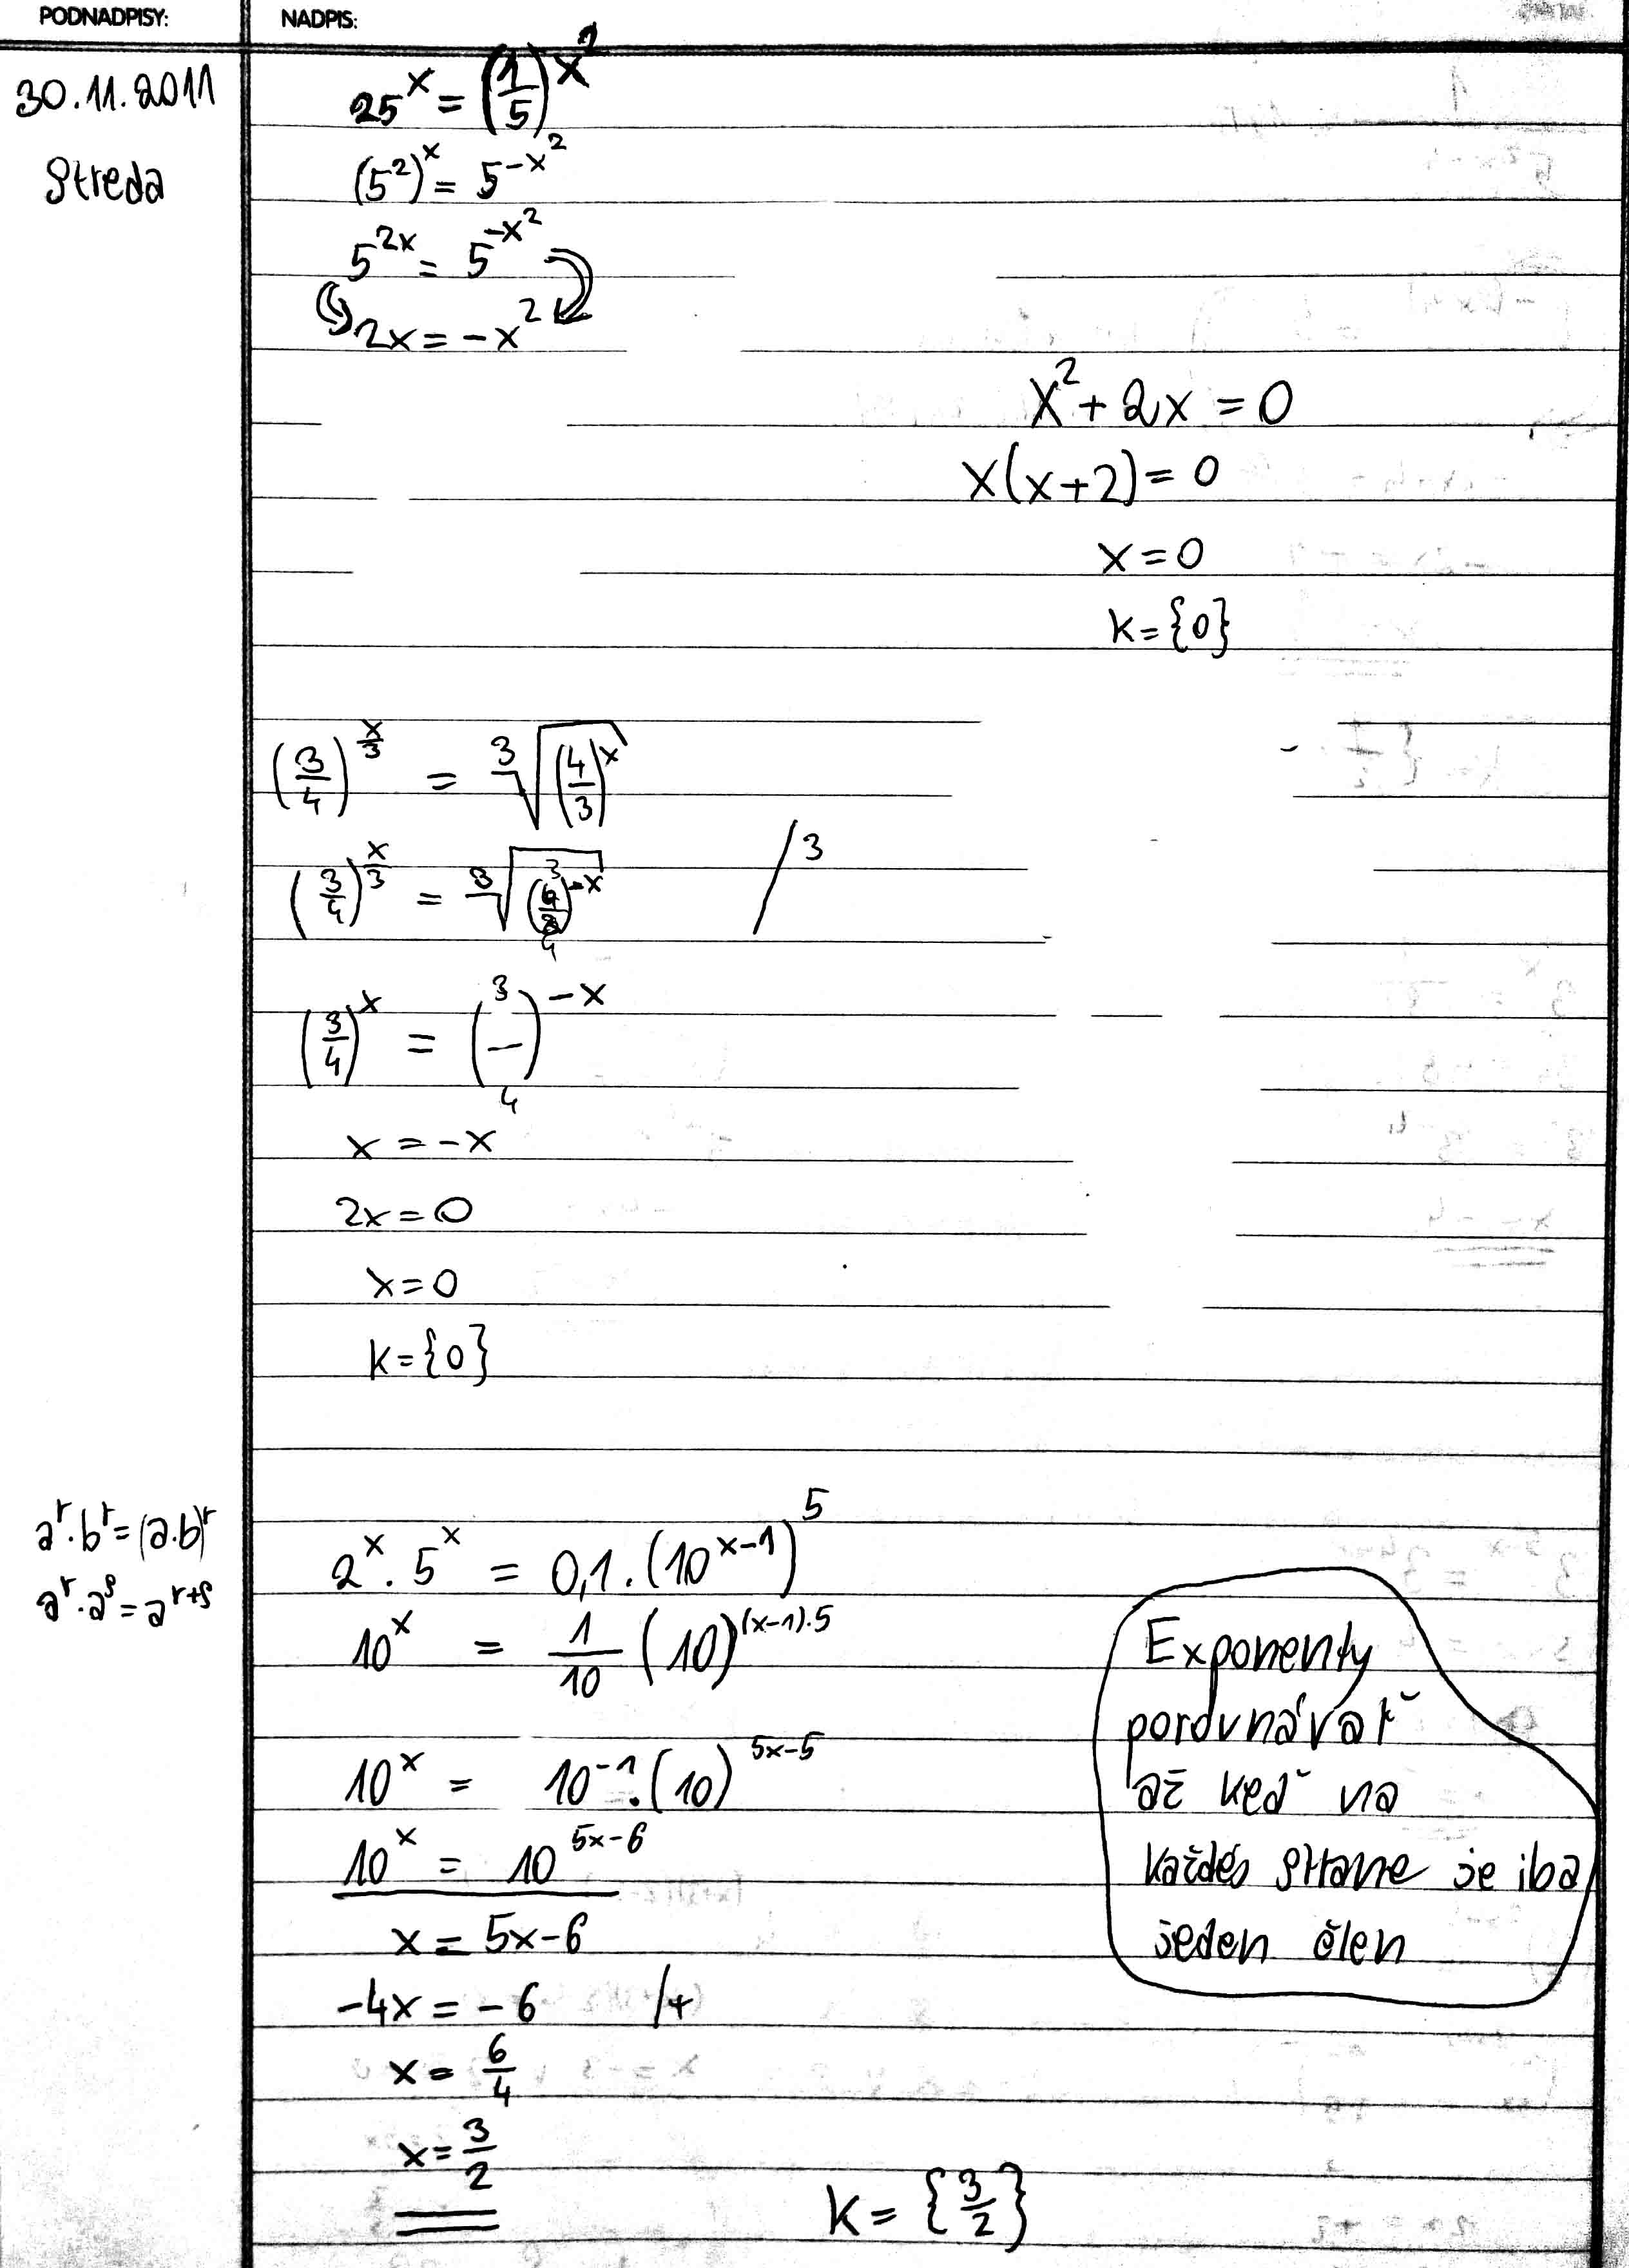 PODNADPISY:
NADPIS:
30.11.2011
Streda
25^x = (1/5)^x^2
(5^2)^x = 5^-x^2
5^2x = 5^-x^2
2x = -x^2
x^2 + 2x = 0
x(x+2) = 0
x = 0
k = {0}
(3/4)^x/3 = ∛(4/3)^x
(3/4)^x/3 = ∛(3/4)^-x /3
(3/4)^x = (3/4)^-x
x = -x
2x = 0
x = 0
k = {0}
a^r . b^r = (a.b)^r
a^r . a^s = a^r+s
2^x . 5^x = 0,1 . (10^x-1)^5
10^x = 1/10 (10)^(x-1).5
10^x = 10^-1 . (10)^5x-5
10^x = 10^5x-6
x = 5x-6
-4x = -6 /+
x = 6/4
x = 3/2
k = {3/2}
Exponenty
porovnávať
až keď na
každej strane je iba
jeden člen